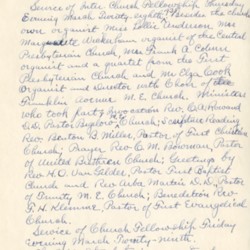 Service of Inter Church Fellowship Thursday
Evening March Twenty eighth Presided the
own organist Miss Lottie Anderson. Mrs
Marguerite Wakelam organist of the Central
Presbyterian Church, Mrs Frank A. Colmer
organist and a quartet from the First
Presbyterian Church and Mr Olga Cook
Organist and Director with Choir of the
Franklin Avenue M.E. Church Ministers
who took part Invocation Rev. C.A. Howard
D.D. Pastor Baptist Church; Scripture Reading
Rev. Benton B. Miller, Pastor of First Christian
Church; Prayer Rev. C.M. Bowman, Pastor
of United Brethren Church; Greetings by
Rev. H.O. Van Gilder, Pastor First Baptist
Church and Rev. Arba Martin D.D. Pastor
of Trinity M.E. Church; Benediction Rev
P.H. Klemme, Pastor of First Evangelical
Church.
Service of Church Fellowship Friday
Evening March Twenty-ninth.